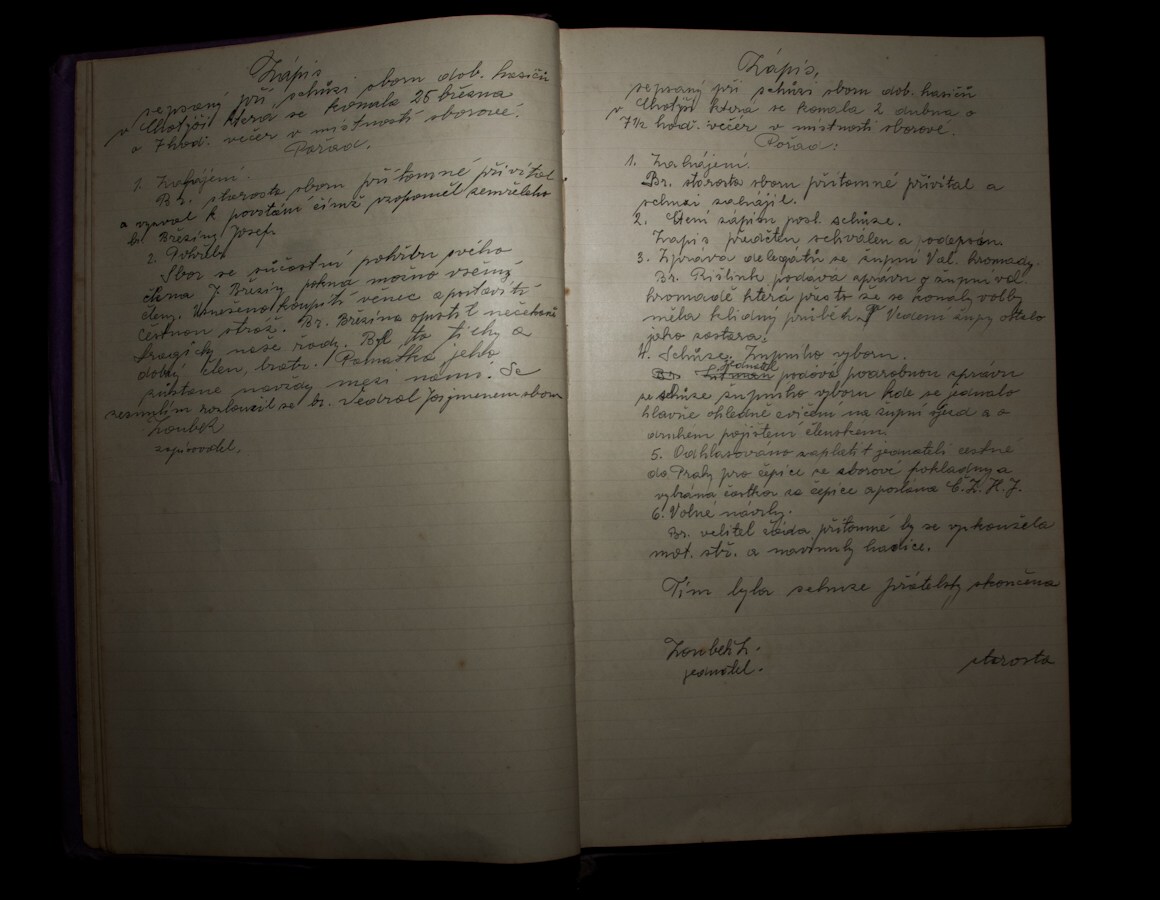 Zápis
sepsaný při schůzi sboru dob. hasičů
v Chotýši která se konala 25 března
o 7 hod. večer v místnosti sborové.
Pořad.
1. Zahájení.
Br. starosta sboru přítomné přivítal
a vyzval k povstání čímž vzpoměl zemřelého
br. Březiny Josefa
2. Pohřeb
Sbor se súčastní pohřbu svého
člena J. Březiny pokud možno všemi
členy. Usneseno koupiti věnec a postaviti
čestnou stráž. Br. Březina opustil nečekaně
tragicky naše řady. Byl to tichý a
dobrý člen, bratr. Památka jeho
zůstane navždy mezi námi. Se
zesnulým rozloučil se br. Vedral Jos jmenem sboru
Zoubek
zapisovatel.
Zápis,
sepsaný při schůzi sboru dob. hasičů
v Chotýši která se konala 2 dubna o
7 1/2 hod. večer v místnosti sborové.
Pořad:
1. Zahájení.
Br. starosta sboru přítomné přivítal a
schuzi zahájil.
2. Čtení zápisu posl. schůze.
Zapis předčten schválen a podepsán.
3. Zpráva delegátů se župní Val. hromady.
Br. podává zprávu o župní val.
hromadě která přesto že se konaly volby
měla klidný průběh. Vedení župy ostalo
jako zastara.
4. Schůze Župního vyboru.
Br. jednatel podává podrobnou zprávu
se schůze župního vyboru kde se jednalo
hlavně ohledně cvičení na župní sjezd a o
druhém pojištení členskem.
5. Odhlasováno zaplatit jednateli cestné
do Prahy pro čepice ze sborové pokladny a
vybrána častka za čepice a poslána Č. Z. H. J.
6. Volné návrhy.
Br. velitel žádá přítomné by se vyzkoušela
mot. stř. a navinuly hadice.
Tím byla schuze přátelsky skončena
Zoubek Z.
jednatel.
starosta